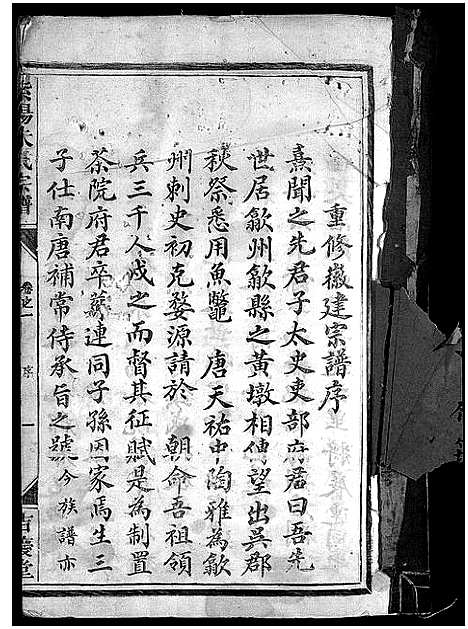 重修徽建宗譜序
熹聞之先君子太史吏部府君曰吾先
世居歙州歙縣之黃墩相傳望出吳郡
秩祭悉用魚鼈　唐天祐中陶雅為歙
州刺史初克婺源請於　朝命吾祖領
兵三千人戍之而督其征賦是為制置
茶院府君卒葬連同子孫因家焉生三
子仕南唐補常侍承旨之號今族譜亦
朱氏宗譜
卷之一
序
一